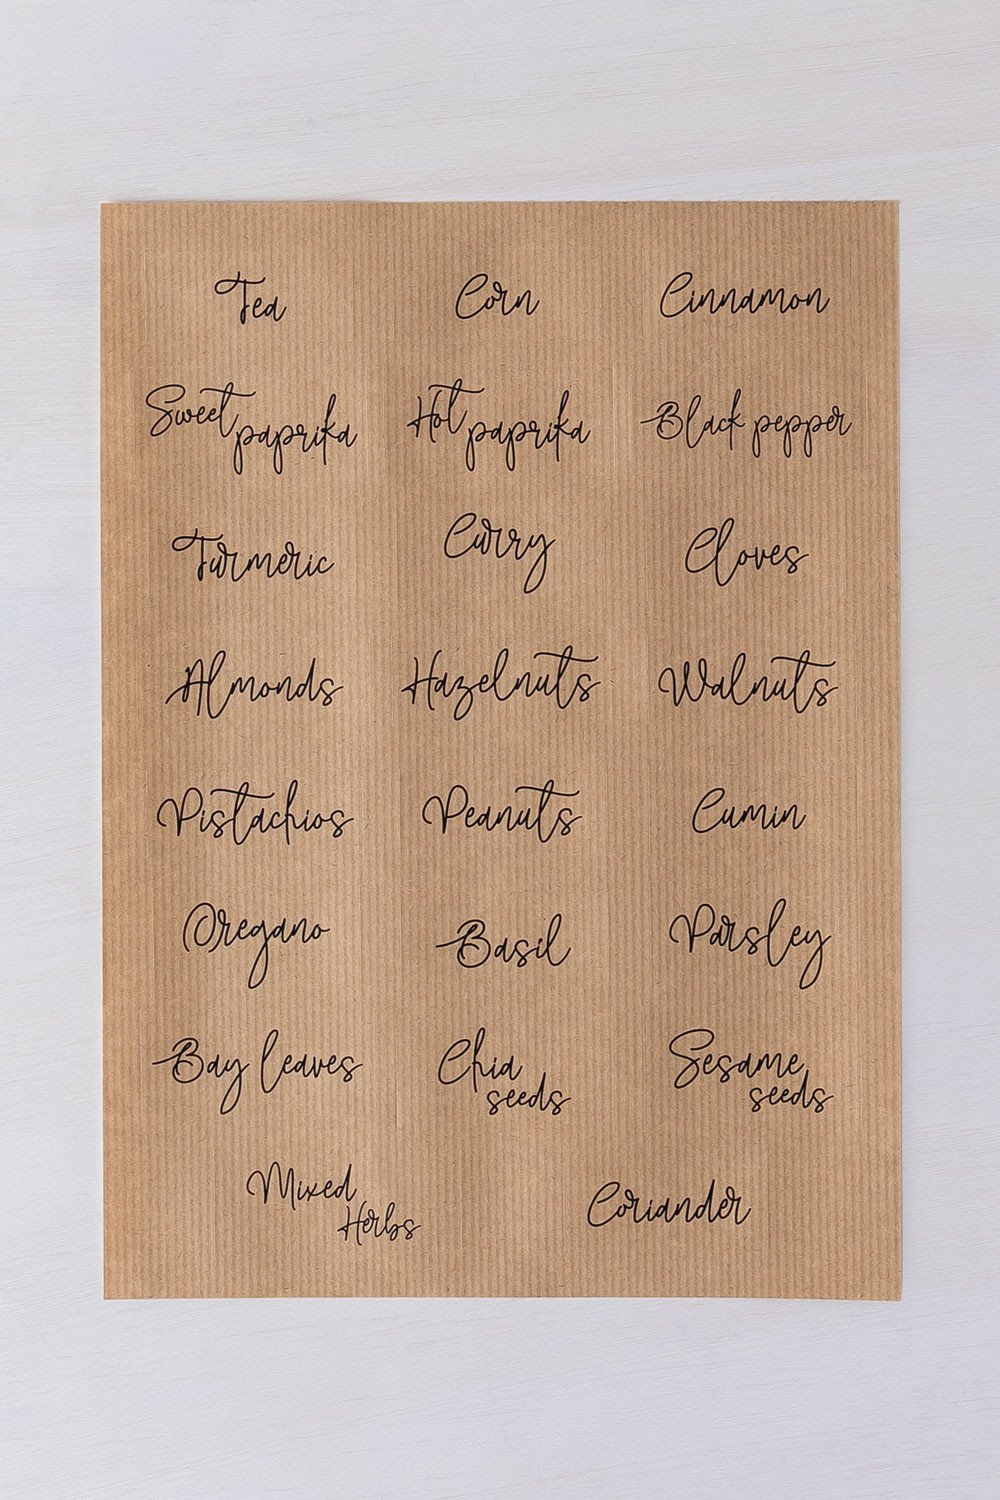 Tea Corn Cinnamon
Sweet paprika Hot paprika Black pepper
Turmeric Curry Cloves
Almonds Hazelnuts Walnuts
Pistachios Peanuts Cumin
Oregano Basil Parsley
Bay leaves Chia seeds Sesame seeds
Mixed Herbs Coriander